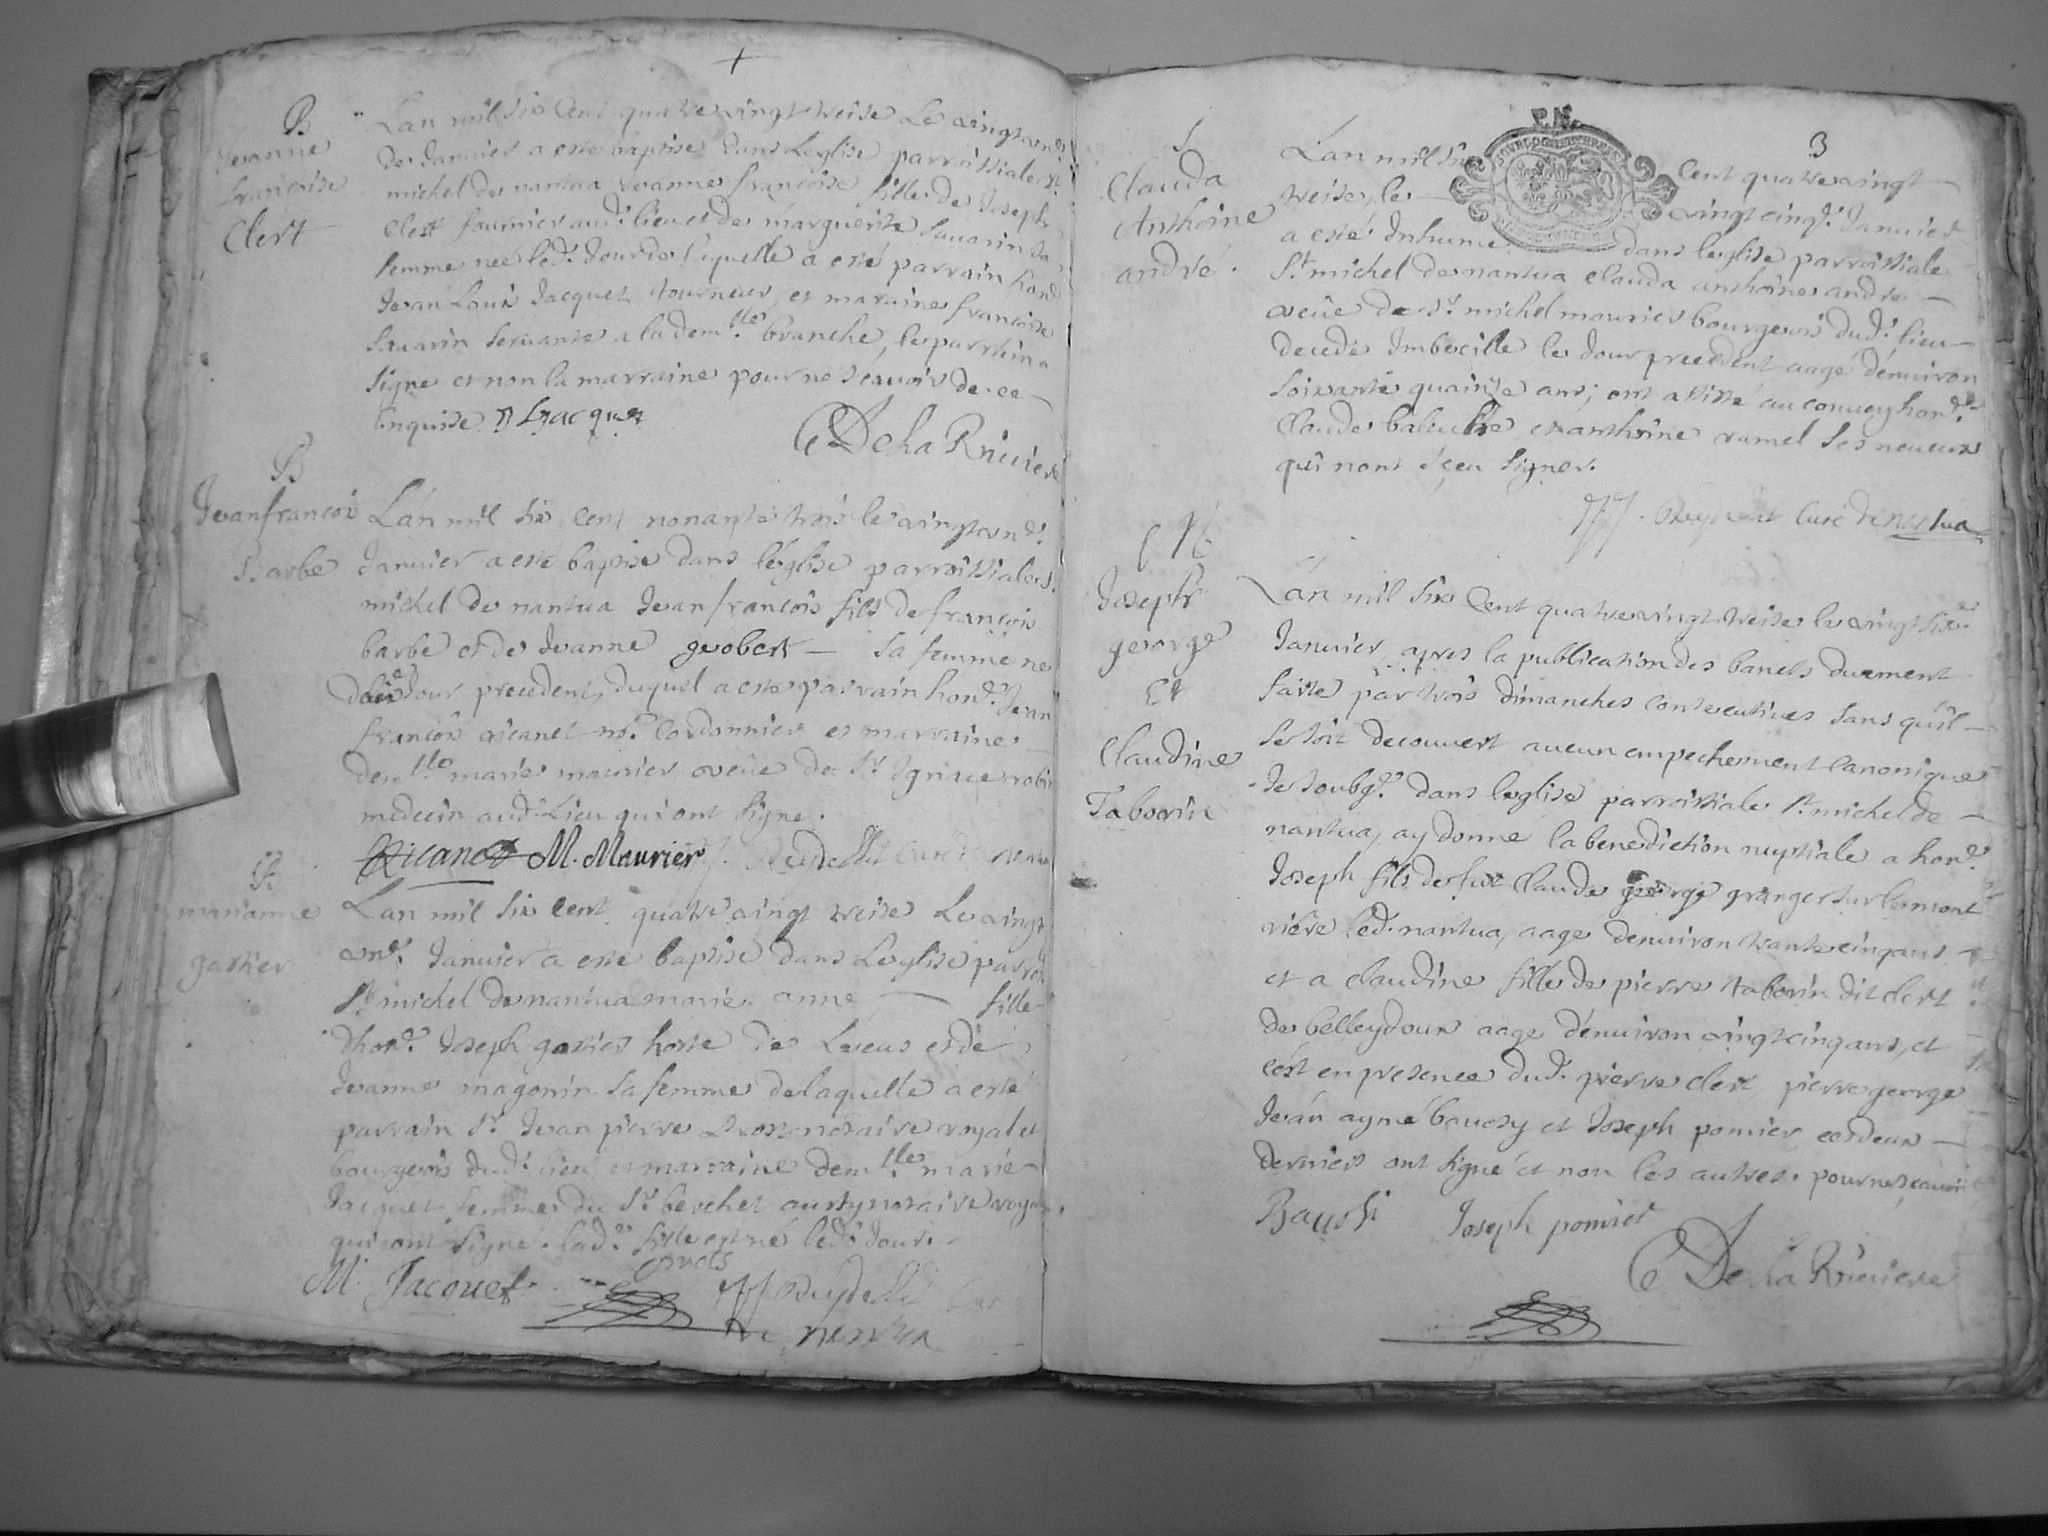 B
Jeanne
francoise
Clert
Lan mil six Cent quatre vingt treise Le vingt un.e
de Janvier a esté baptisé dans Leglise parroissiale St
michel de nantua Jeanne francoise fille de Joseph
Clert fournier aud.t lieu et de marguerite Savarin Sa
femme nee led.t Jour de laquelle a esté parrain hon.e
Jean Louis Jacquet tourneur, et maraine francoise
Savarin Servante a la dem.lle branche, le parrain a
signe et non la marraine pour ne scavoir de ce
Enquise. Jacquet
De La Riuiere
B
Jean francois
Barbe
L'an mil six Cent nonante trois le vingt un.e
Januier a esté baptise dans l'eglise parroissiale St
michel de nantua Jean francois fils de francois
barbe et de Jeanne geobert sa femme ne
Jour precedent, duquel a este parrain hon.e Jean
francois ricanet m.e Cordonnier et marraine
dem.lle marie maurier veûe de Sr Ignace robin
medecin aud.t Lieu qui ont signe.
Ricanet M. Maurier Curé de
B
marianne
gartier
Lan mil six cent quatre vingt treise Le vingt
un.e Januier a esté baptise dans Leglise parrois
St michel de nantua marie anne fille
d'hon.e Joseph gartier hoste de et de
Jeanne magonin sa femme de laquelle a esté
parrain Sr Jean pierre notaire royal et
bourgeois dud.t lieu et marraine dem.lle marie
Jacquet femme du Sr berchet aussy notaire royal
qui ont signé. lad.e fille est né led.t Jour.
M. Jacquet
de nantua
+
3
S
Clauda
Anthoine
andré.
Lan mil six Cent quatre vingt
treise, le vingt cinq.e Januier
a esté Inhumé dans leglise parroissiale
St michel de nantua clauda anthoine andre
veûe de Sr michel maurier bourgeois dud.t lieu
decede Imbecille le Jour precedent aagé d'enuiron
soixante quainze ans; ont assisté au convoy hon.e
Claude et anthoine ramel ses neueux
qui nont sçeu signer.
Curé de nantua
M
Joseph
george
Et
Claudine
Taborin
Lan mil six Cent quatre vingt treise le vingt six.e
Januier, apres la publication des bancts duement
faite par trois dimanches consecutiues sans qu'il
se soit decouvert aucun empechement canonique
Je soubg.e dans leglise parroissiale St michel de
nantua, ay donne la benediction nuptiale a hon.e
Joseph fils de fut Claude george granger sur le mont
riere led. nantua, aage denuiron trante cinq ans
et a claudine fille de pierre taborin dit clert
de belleydoux aage d'enuiron vingt cinq ans, et
c'est en presence dud. pierre clert pierre george
Jean aymé bauery et Joseph pomier, ces deux
derniers ont signé et non les autres pour ne scauoir
Joseph pomier
De La Riuiere